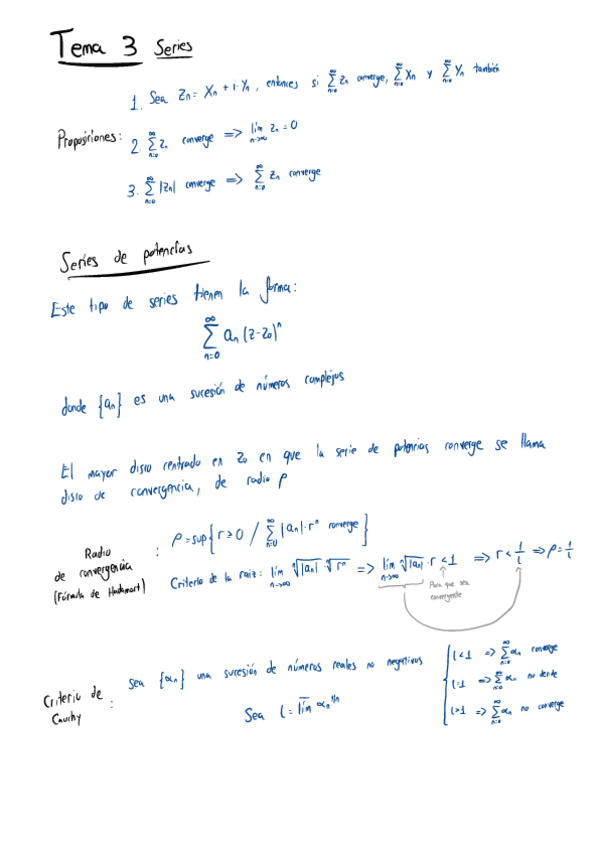 Tema 3 Series
Proposiciones:
1. Sea Zn = Xn + i·Yn, entonces si ∑_{n=0}^{∞} Zn converge, ∑_{n=0}^{∞} Xn y ∑_{n=0}^{∞} Yn también
2. ∑_{n=0}^{∞} Zn converge => lim_{n→∞} Zn = 0
3. ∑_{n=0}^{∞} |Zn| converge => ∑_{n=0}^{∞} Zn converge
Series de potencias
Este tipo de series tienen la forma:
∑_{n=0}^{∞} an (z-z0)^n
donde {an} es una sucesión de números complejos
El mayor disco centrado en z0 en que la serie de potencias converge se llama
disco de convergencia, de radio ρ
Radio
de convergencia
(Fórmula de Hadamart) :
ρ = sup{ r ≥ 0 / ∑_{n=0}^{∞} |an|·r^n converge }
Criterio de la raiz: lim_{n→∞} ⁿ√|an| · ⁿ√r^n => lim_{n→∞} ⁿ√|an| · r < 1 => r < 1/l => ρ = 1/l
Para que sea
convergente
Criterio de
Cauchy :
Sea {αn} una sucesión de números reales no negativos
Sea l = lim̅ αn^{1/n}
l<1 => ∑_{n=0}^{∞} αn converge
l=1 => ∑_{n=0}^{∞} αn no decide
l>1 => ∑_{n=0}^{∞} αn no converge